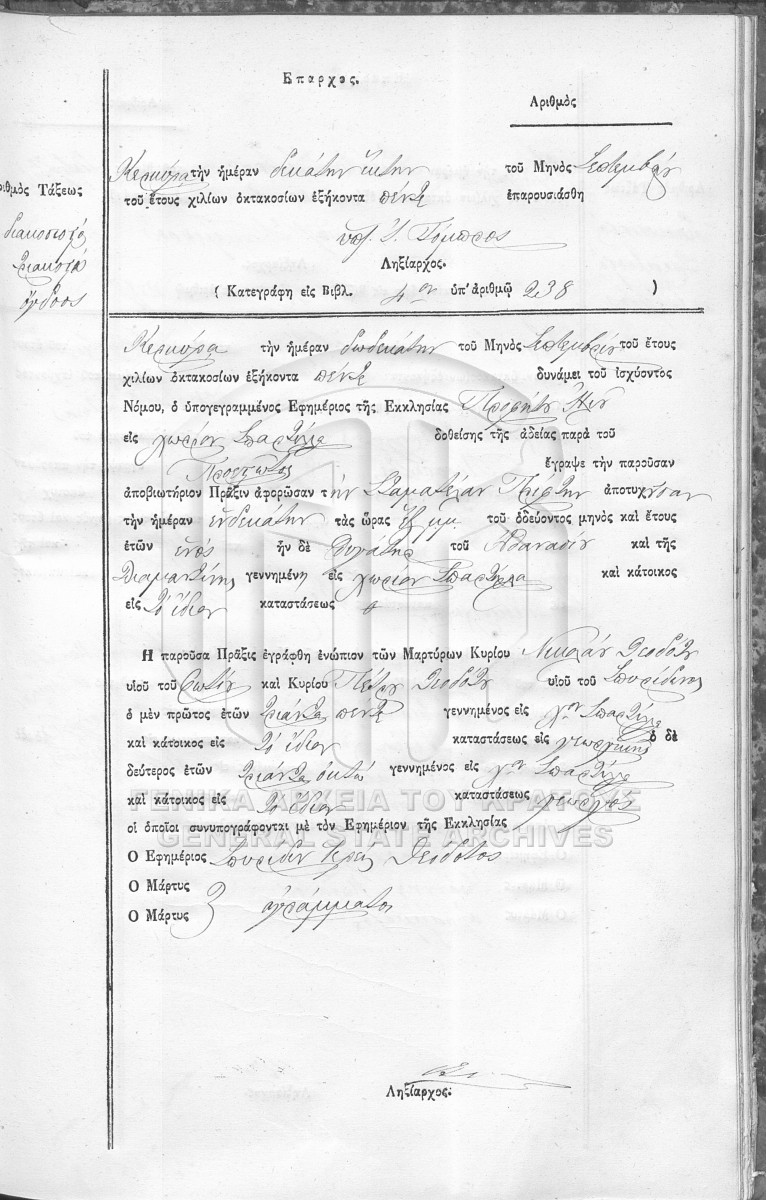 Επαρχος.
Αριθμὸς
Κερκύρα τὴν ἡμέραν δεκάτην ἕκτην τοῦ Μηνὸς Σεπτεμβρίου
τοῦ ἔτους χιλίων ὀκτακοσίων ἑξήκοντα πέντε ἐπαρουσιάσθη
ριθμὸς Τάξεως
διακόσια
τριακοστὰ
ὄγδοος
υπ.
Ληξίαρχος.
( Κατεγράφη εἰς Βιβλ. 4ον ὑπ' ἀριθμῷ 238 )
Κερκύρα τὴν ἡμέραν δωδεκάτην τοῦ Μηνὸς Σεπτεμβρίου τοῦ ἔτους
χιλίων ὀκτακοσίων ἑξήκοντα πέντε δυνάμει τοῦ ἰσχύοντος
Νόμου, ὁ ὑπογεγραμμένος Ἐφημέριος τῆς Ἐκκλησίας Προφήτου Ηλιου
εἰς χωρίον Σπαρτύλλα δοθείσης τῆς ἀδείας παρὰ τοῦ
Προεστῶτος ἔγραψε τὴν παροῦσαν
ἀποβιωτήριον Πρᾶξιν ἀφορῶσαν τὴν Σταματέλαν ἀποτυχοῦσαν
τὴν ἡμέραν ἑνδεκάτην τὰς ὥρας ἓξ μμ. τοῦ ὁδεύοντος μηνὸς καὶ ἔτους
ἐτῶν ἑνὸς ἦν δὲ θυγάτηρ τοῦ Αθανασίου καὶ τῆς
Διαμαντίνης γεννημένη εἰς χωρίον Σπαρτύλλα καὶ κάτοικος
εἰς τὸ ἴδιον καταστάσεως
Η παροῦσα Πρᾶξις ἐγράφθη ἐνώπιον τῶν Μαρτύρων Κυρίου Νικολάου Θεοδότου
υἱοῦ τοῦ Φωτίου καὶ Κυρίου Πέτρου Θεοδότου υἱοῦ τοῦ Σπυρίδωνος
ὁ μὲν πρῶτος ἐτῶν τριάντα πέντε γεννημένος εἰς χον Σπαρτύλλα
καὶ κάτοικος εἰς τὸ ἴδιον καταστάσεως εἰς γεωργικης ὁ δὲ
δεύτερος ἐτῶν τριάντα ὀκτώ γεννημένος εἰς χον Σπαρτύλλα
καὶ κάτοικος εἰς τὸ ἴδιον καταστάσεως γεωργος
οἱ ὁποῖοι συνυπογράφονται μὲ τὸν Ἐφημέριον τῆς Ἐκκλησίας
Ο Ἐφημέριος Σπυρίδων Ιερευς Θεοδότος
Ο Μάρτυς
Ο Μάρτυς ἀγράμματοι
Ληξίαρχος:
ΓΕΝΙΚΑ ΑΡΧΕΙΑ ΤΟΥ ΚΡΑΤΟΥΣ
GENERAL STATE ARCHIVES